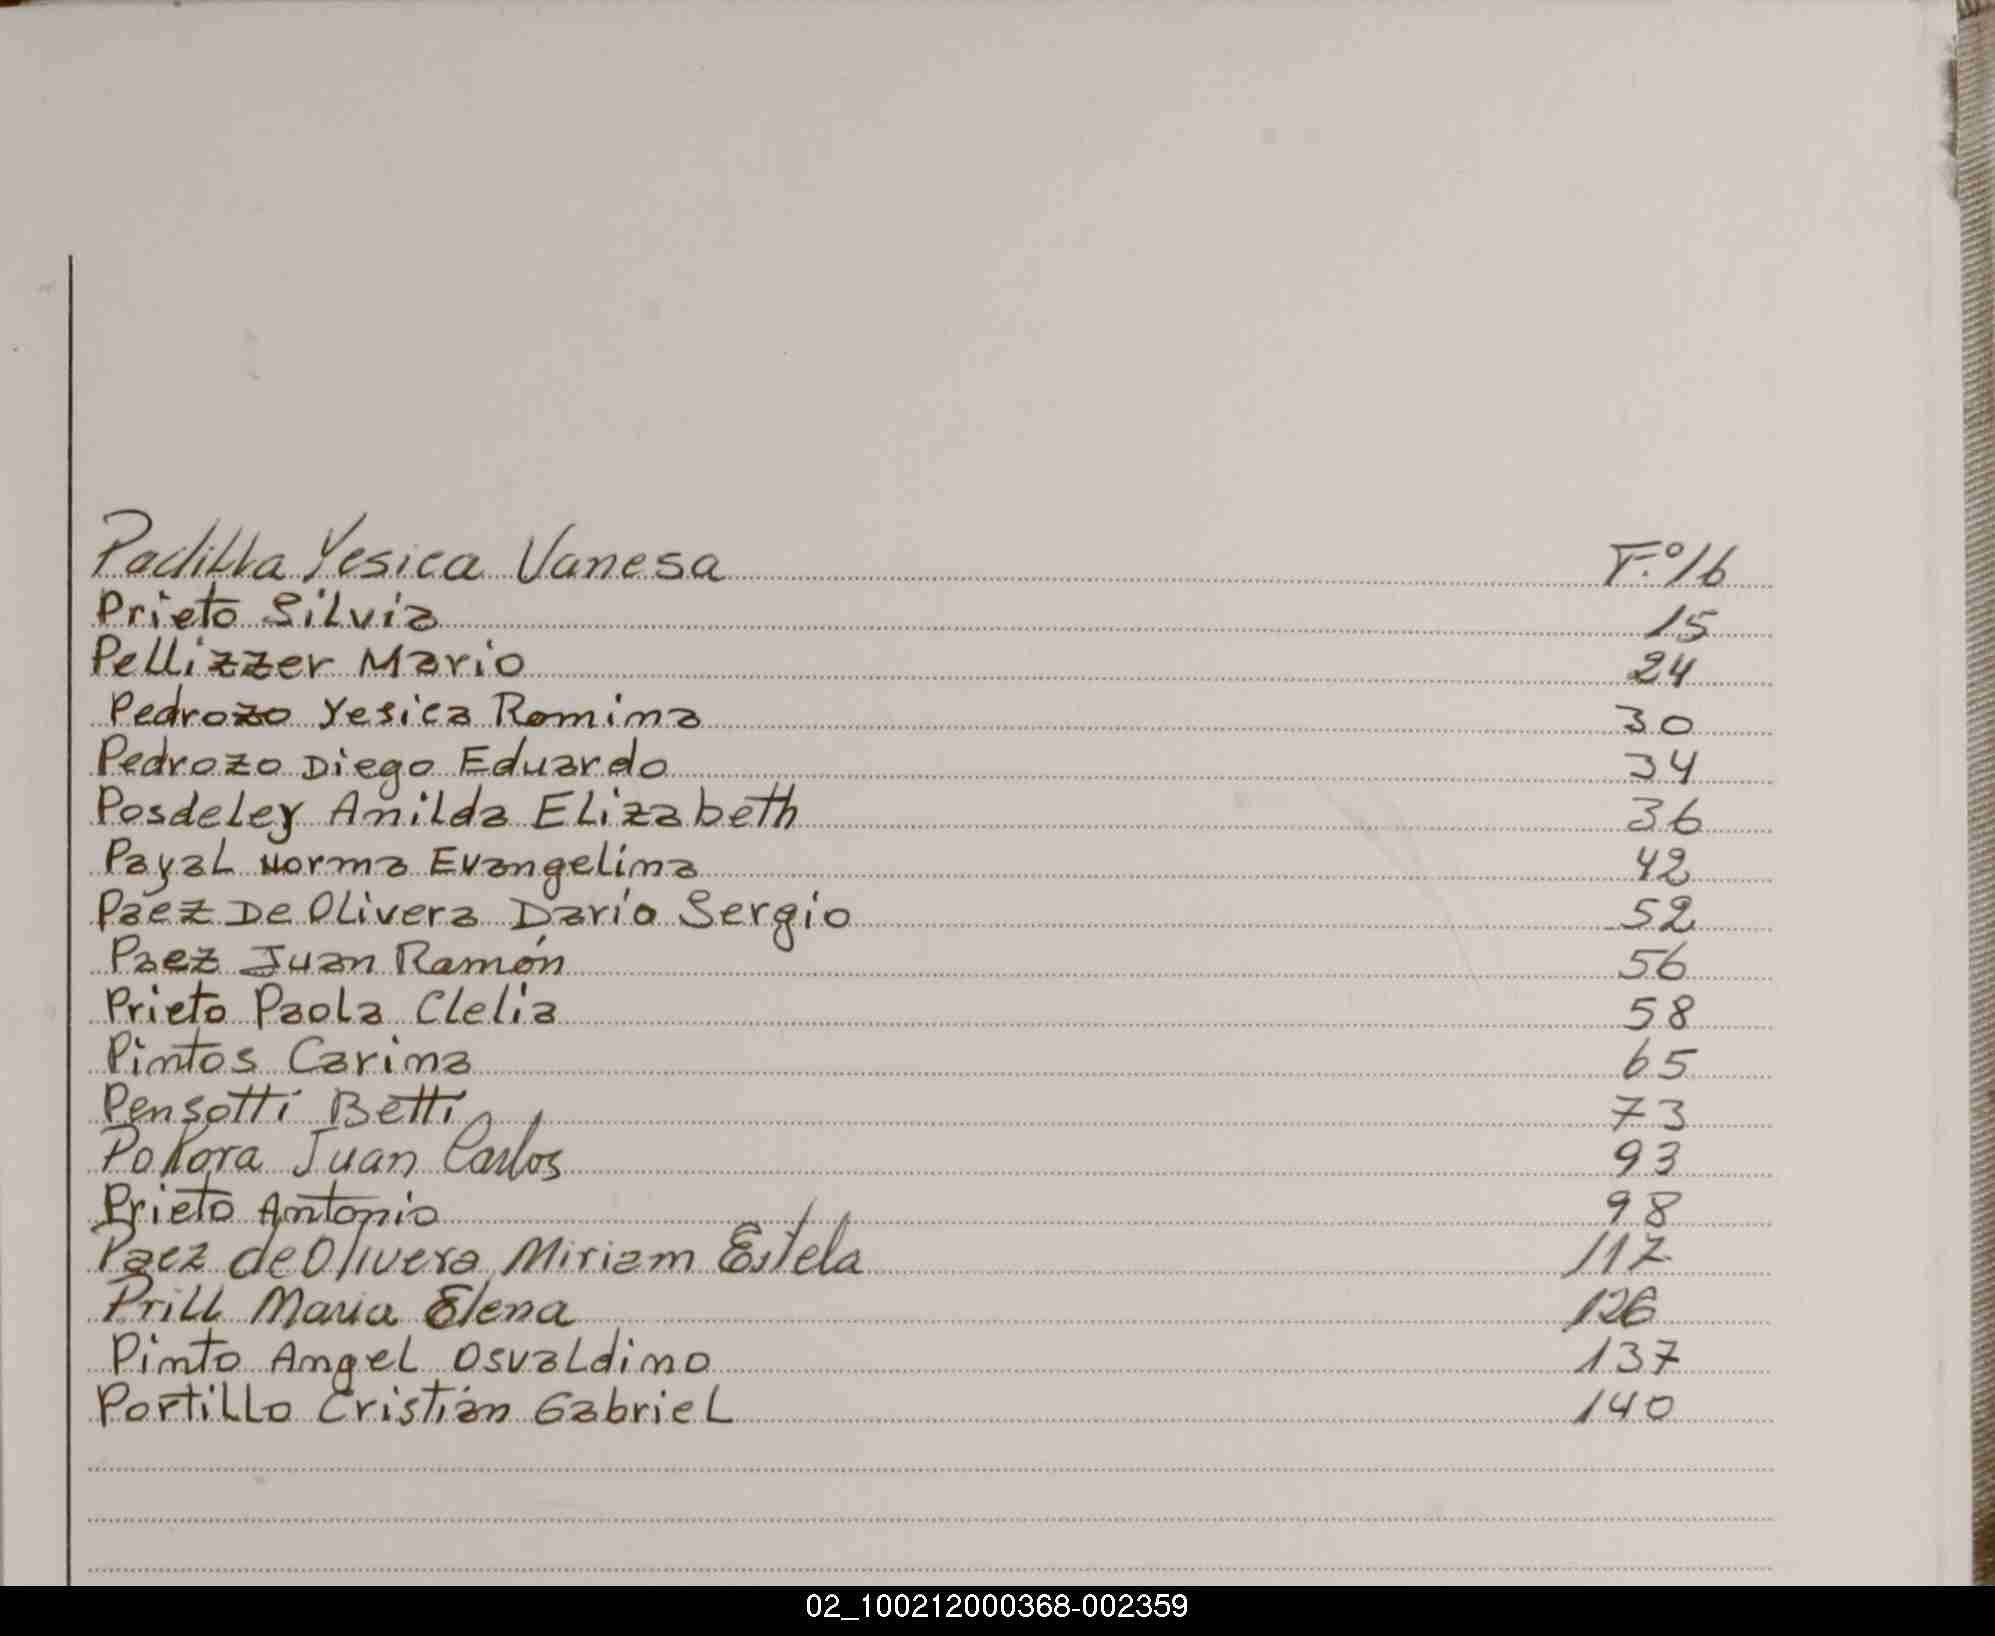 Padilla Yesica Vanesa F.º 16
Prieto Silvia 15
Pellizzer Mario 24
Pedrozo Yesica Romina 30
Pedrozo Diego Eduardo 34
Posdeley Anilda Elizabeth 36
Payal Norma Evangelina 42
Paez De Olivera Darío Sergio 52
Paez Juan Ramón 56
Prieto Paola Clelia 58
Pintos Carina 65
Pensotti Betti 73
Pokora Juan Carlos 93
Prieto Antonio 98
Paez de Olivera Miriam Estela 117
Prill Maria Elena 126
Pinto Angel Osvaldino 137
Portillo Cristián Gabriel 140
02_100212000368-002359